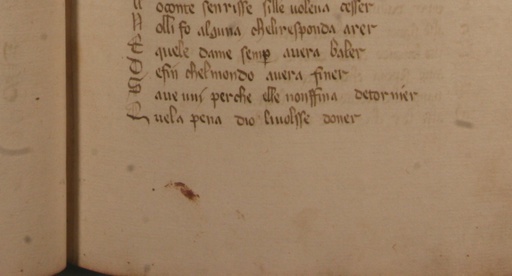 oconte senrisse sille volena cesser
N olli fo alguna chelir responda arer
E quele dame semp avera baler
E sin chelmondo avera finer
D ave uni perche elle nonffina detornier
Q uela pena dio li volisse doner